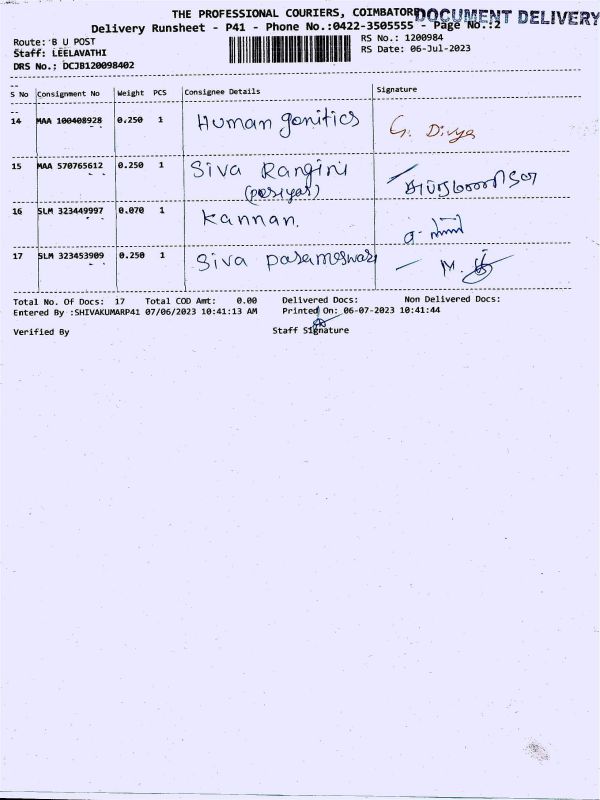 THE PROFESSIONAL COURIERS, COIMBATORE
DOCUMENT DELIVERY
Delivery Runsheet - P41 - Phone No.:0422-3505555 - Page No.:2
Route: B U POST
Staff: LEELAVATHI
DRS No.: DCJB120098402
RS No.: 1200984
RS Date: 06-Jul-2023
S No Consignment No Weight PCS Consignee Details Signature
14 MAA 100408928 0.250 1 Human genitics G. Divya
15 MAA 570765612 0.250 1 Siva Rangini
(periyar)
16 SLM 323449997 0.070 1 Kannan.
17 SLM 323453909 0.250 1 Siva parameswari M.
Total No. Of Docs: 17 Total COD Amt: 0.00 Delivered Docs: Non Delivered Docs:
Entered By :SHIVAKUMARP41 07/06/2023 10:41:13 AM Printed On: 06-07-2023 10:41:44
Verified By Staff Signature